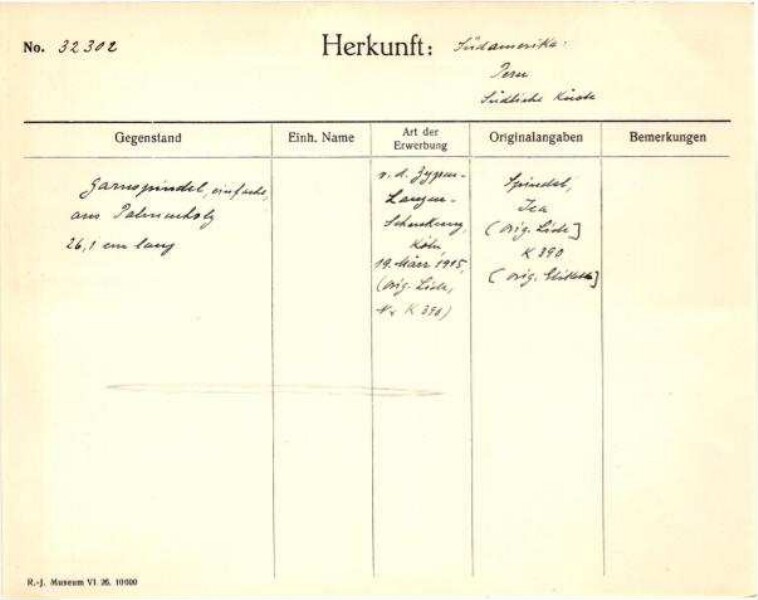 No. 32302
Herkunft: Südamerika:
Peru
Südliche Küste
Gegenstand
Einh. Name
Art der
Erwerbung
Originalangaben
Bemerkungen
Garnspindel, einfache,
aus Palmenholz
26,1 cm lang
v. d. Zypen-
Langen-
Schenkung,
Köln
19. März 1915,
(orig. Liste,
Nr K 390)
Spindel,
Ica
(orig. Liste]
K 390
(orig. Etikett]
R.-J. Museum VI 26. 10000